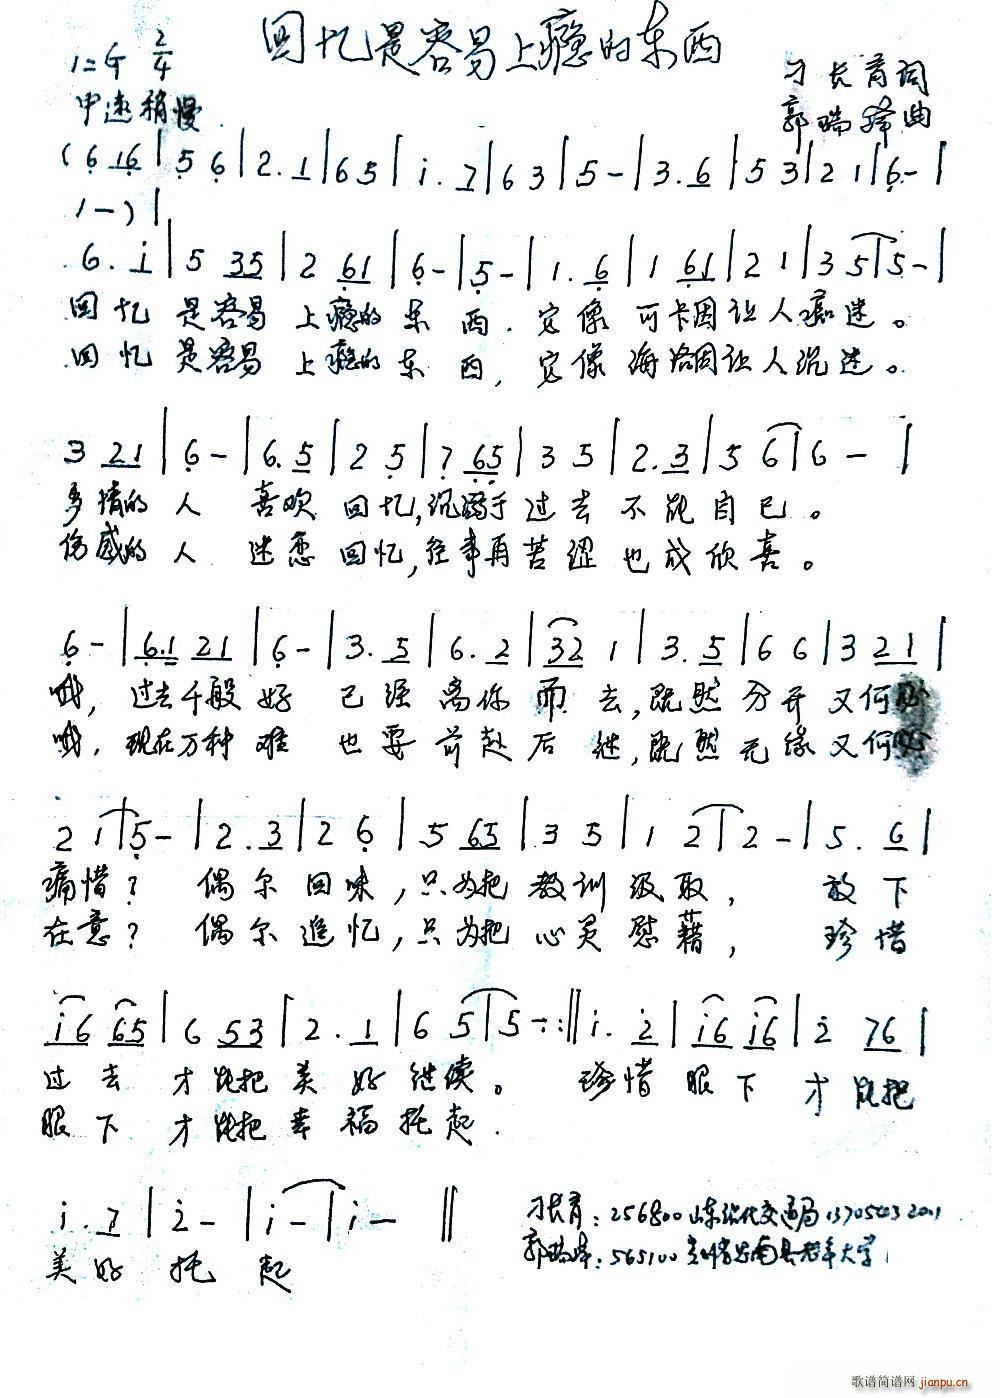 回忆是容易上瘾的东西
1=G 2/4
刁长育词
中速稍慢
郭瑞峰曲
(6 16|5 6|2. 1|65|i. 7|63|5-|3. 6|53|21|6-|
1-)|
6. i|5 35|2 61|6-|5-|1. 6|1 61|21|3 5|5-|
回忆 是容易 上瘾的 东 西. 它像 可卡因让人痴迷。
回忆 是容易 上瘾的 东 西, 它像 海洛因让人沉迷。
3 21|6-|6. 5|2 5|7 65|3 5|2. 3|5 6|6 -|
多情的 人 喜欢 回忆,沉溺于过去不能自己。
伤感的 人 迷恋 回忆,往事再苦涩也成欣喜。
6-|6.1 21|6-|3. 5|6. 2|32 1|3. 5|6 6|3 21|
哦, 过去千般好 已经离你而去,既然分开又何必
哦, 现在万种难 也要前赴后继,既然无缘又何必
2 1|5-|2. 3|2 6|5 65|3 5|1 2|2-|5. 6|
痛惜? 偶尔回味,只为把教训汲取, 放下
在意? 偶尔追忆,只为把心灵慰藉, 珍惜
i6 65|6 53|2. 1|6 5|5-:‖i. 2|i6 i6|2 76|
过去 才能把美好继续。 珍惜 眼下 才能把
眼下 才能把幸福托起.
i. 7|2-|i-|i-‖
美好 托 起
刁长育:256800山东沾化交通局
郭瑞峰:565100 县老年大学
歌谱简谱网
jianpu.cn